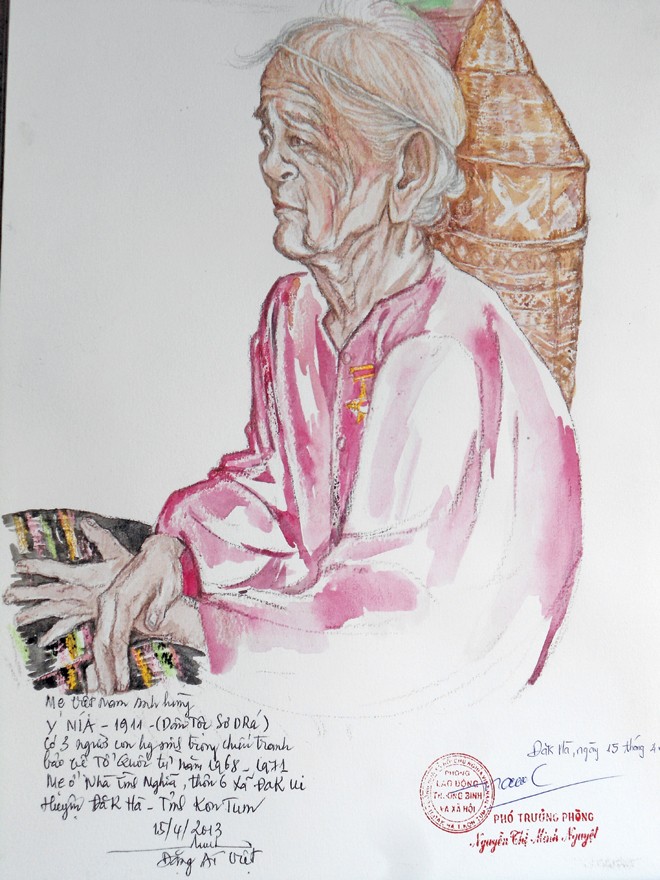 Mẹ Việt Nam anh hùng
Y NIÁ - 1911 - (Dân Tộc Sơ DRá)
Có 3 người con hy sinh trong chiến tranh
bảo vệ Tổ Quốc từ năm 1968 - 1971
Mẹ ở Nhà tình Nghĩa, thôn 6 Xã ĐaK Ui
Huyện ĐăK Hà - Tỉnh Kon Tum
15/4/2013
Đặng Ái Việt
Đăk Hà, ngày 15 tháng 4
PHÒNG
LAO ĐỘNG
THƯƠNG BINH
VÀ XÃ HỘI
PHÓ TRƯỞNG PHÒNG
Nguyễn Thị Minh Nguyệt